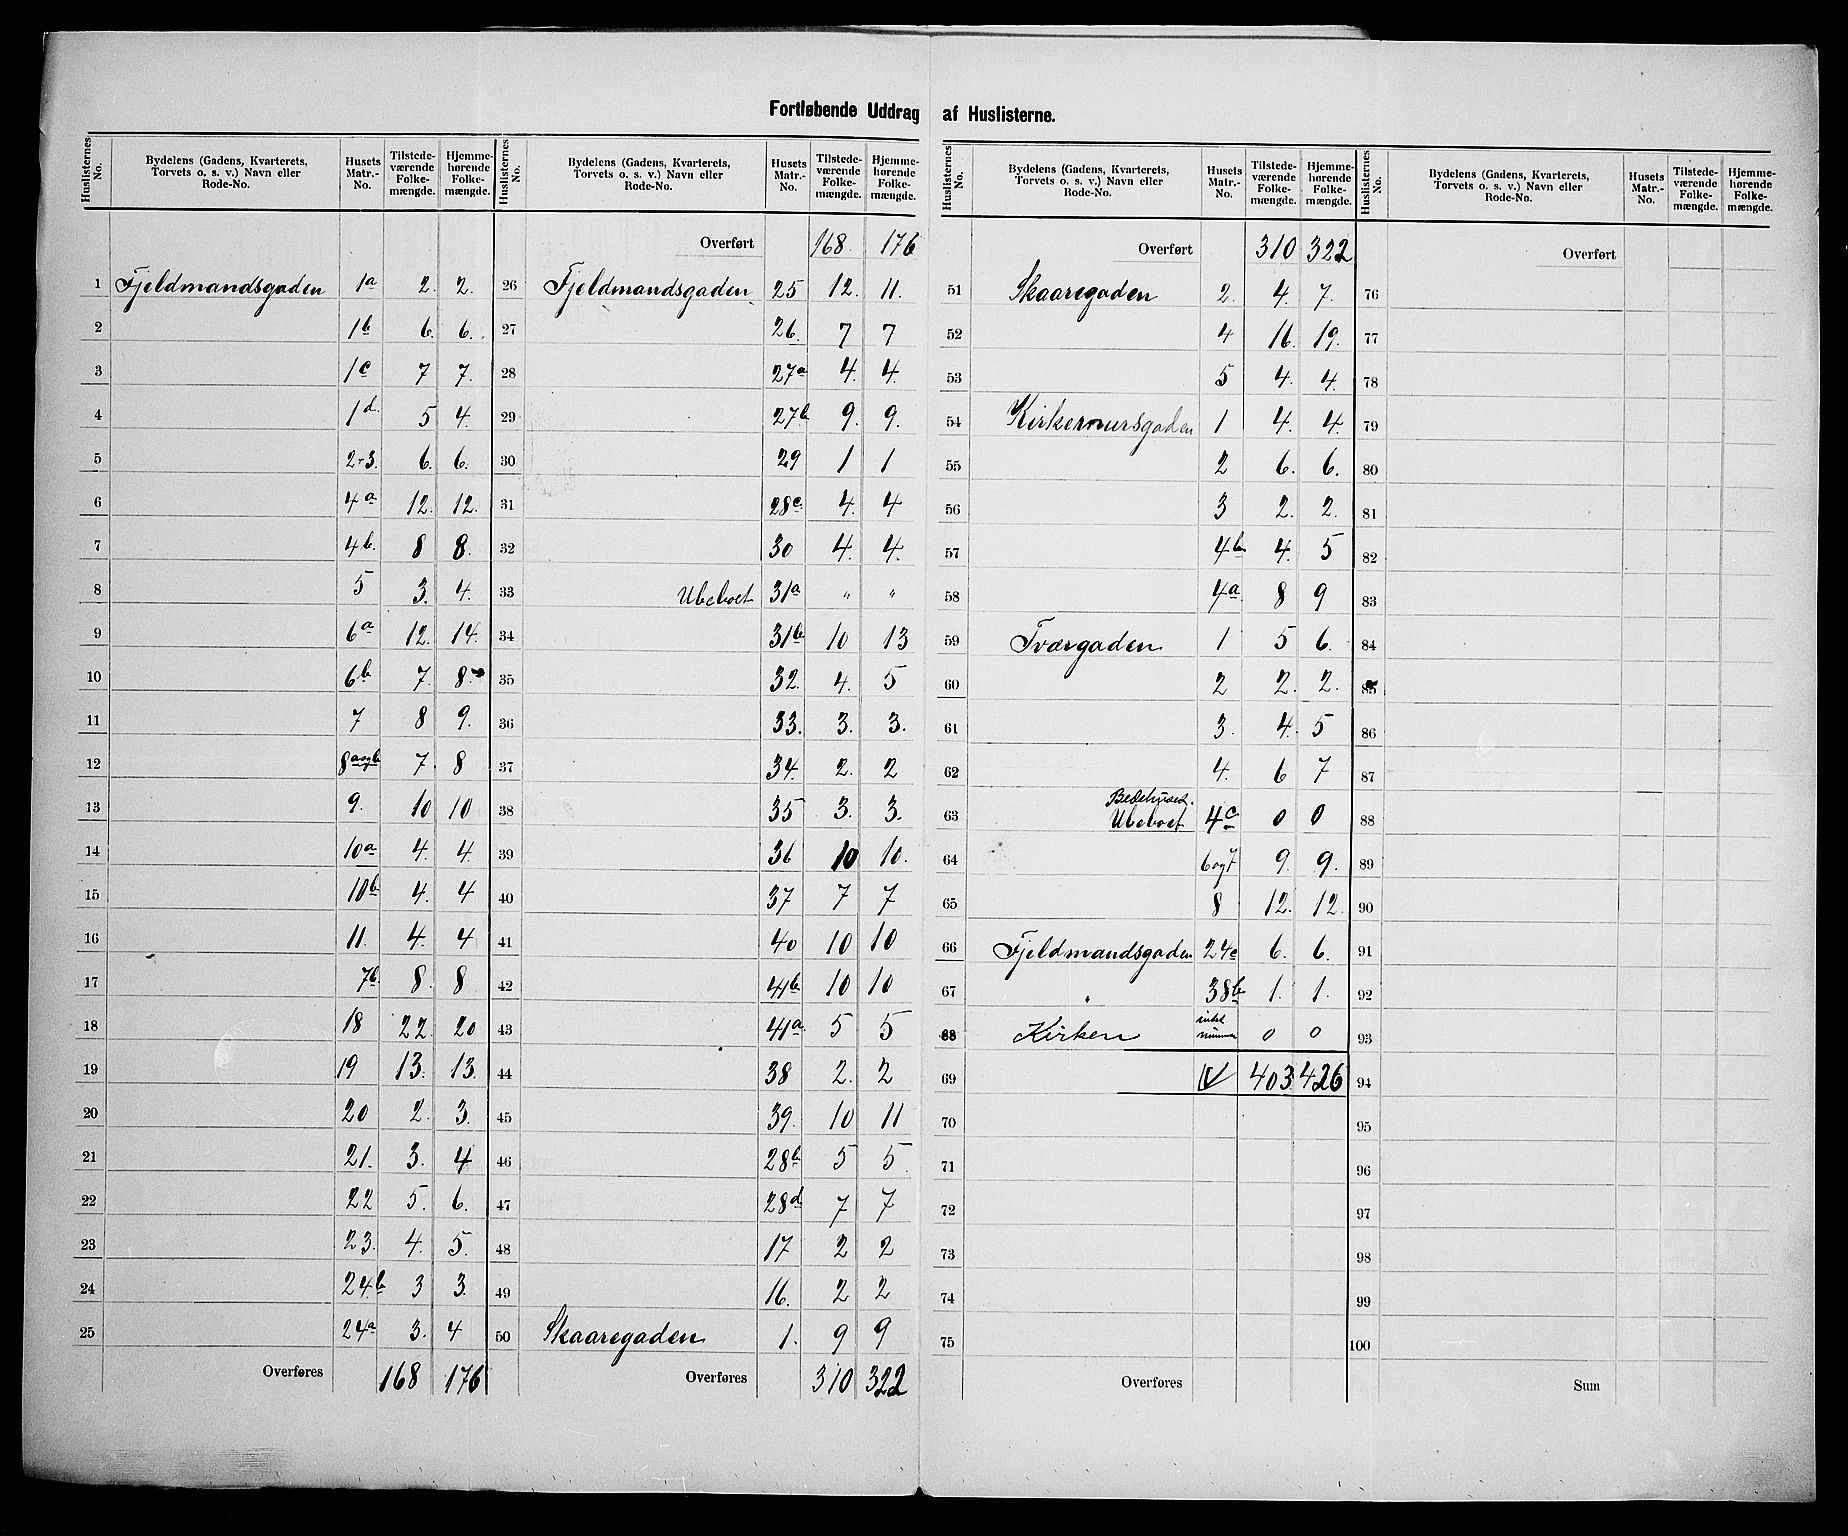 Fortløbende Uddrag af Huslisterne.
Huslisternes No. | Bydelens (Gadens, Kvarterets, Torvets o. s. v.) Navn eller Rode-No. | Husets Matr.-No. | Tilstedeværende Folkemængde. | Hjemmehørende Folkemængde.
1 Fjeldmandsgaden 1a 2. 2.
2 1b 6. 6.
3 1c 7 7.
4 1d. 5 4.
5 2+3. 6. 6.
6 4a 12. 12.
7 4b. 8 8.
8 5 3. 4.
9 6a 12. 14.
10 6b 7. 8.
11 7 8 9.
12 8aogb 7. 8
13 9. 10 10
14 10a 4. 4.
15 10b 4. 4
16 11. 4. 4
17 7b. 8. 8
18 18 22. 20
19 19 13. 13.
20 20 2. 3.
21 21. 3. 4
22 22 5. 6.
23 23. 4. 5.
24 24b 3 3.
25 24a 3. 4
Overføres 168 176
Huslisternes No. | Bydelens (Gadens, Kvarterets, Torvets o. s. v.) Navn eller Rode-No. | Husets Matr.-No. | Tilstedeværende Folkemængde. | Hjemmehørende Folkemængde.
Overført 168. 176
26 Fjeldmandsgaden 25 12. 11.
27 26. 7 7
28 27a 4. 4.
29 27b 9. 9.
30 29 1 1
31 28c. 4. 4
32 30 4. 4.
33 Ubeboet 31a " "
34 31b 10 13
35 32. 4. 5
36 33. 3. 3.
37 34. 2. 2
38 35 3. 3.
39 36 10 10.
40 37 7 7
41 40 10 10
42 41b 10 10
43 41a 5 5
44 38 2. 2
45 39. 10 11
46 28b 5 5.
47 28d 7 7
48 17 2 2
49 16. 2 2
50 Skaaregaden 1. 9 9
Overføres 310 322
Huslisternes No. | Bydelens (Gadens, Kvarterets, Torvets o. s. v.) Navn eller Rode-No. | Husets Matr.-No. | Tilstedeværende Folkemængde. | Hjemmehørende Folkemængde.
Overført 310 322
51 Skaaregaden 2. 4. 7.
52 4 16. 19.
53 5 4. 4.
54 Kirkemursgaden 1 4. 4.
55 2 6. 6.
56 3 2. 2.
57 4b 4. 5
58 4a. 8 9
59 Tværgaden 1 5 6.
60 2 2. 2.
61 3. 4. 5
62 4. 6 7
63 Bedehuset. Ubeboet 4c 0 0
64 6og7 9. 9.
65 8 12. 12.
66 Fjeldmandsgaden 24c 6. 6.
67 " 38b 1. 1.
68 Kirken intet nummer 0 0
69 403 426
70
71
72
73
74
75
Overføres
Huslisternes No. | Bydelens (Gadens, Kvarterets, Torvets o. s. v.) Navn eller Rode-No. | Husets Matr.-No. | Tilstedeværende Folkemængde. | Hjemmehørende Folkemængde.
Overført
76
77
78
79
80
81
82
83
84
85
86
87
88
89
90
91
92
93
94
95
96
97
98
99
100
Sum